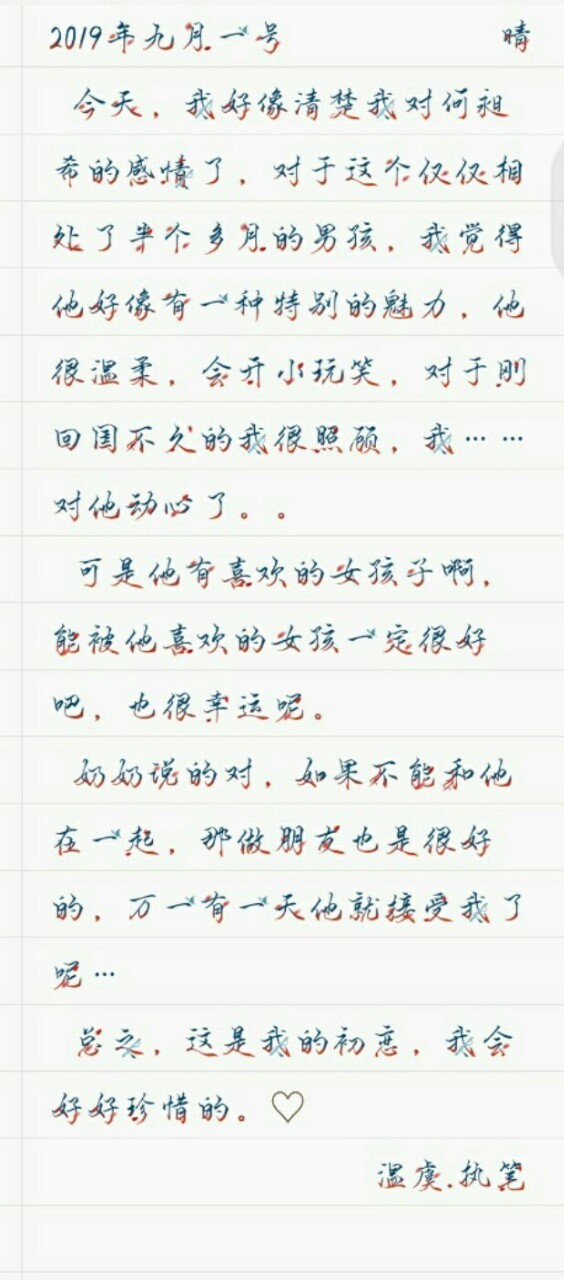 2019年九月一号 晴
今天，我好像清楚我对何昶
希的感情了，对于这个仅仅相
处了半个多月的男孩，我觉得
他好像有一种特别的魅力，他
很温柔，会开小玩笑，对于刚
回国不久的我很照顾，我……
对他动心了。。
可是他有喜欢的女孩子啊，
能被他喜欢的女孩一定很好
吧，也很幸运呢。
奶奶说的对，如果不能和他
在一起，那做朋友也是很好
的，万一有一天他就接受我了
呢…
总之，这是我的初恋，我会
好好珍惜的。♡
温虞.执笔